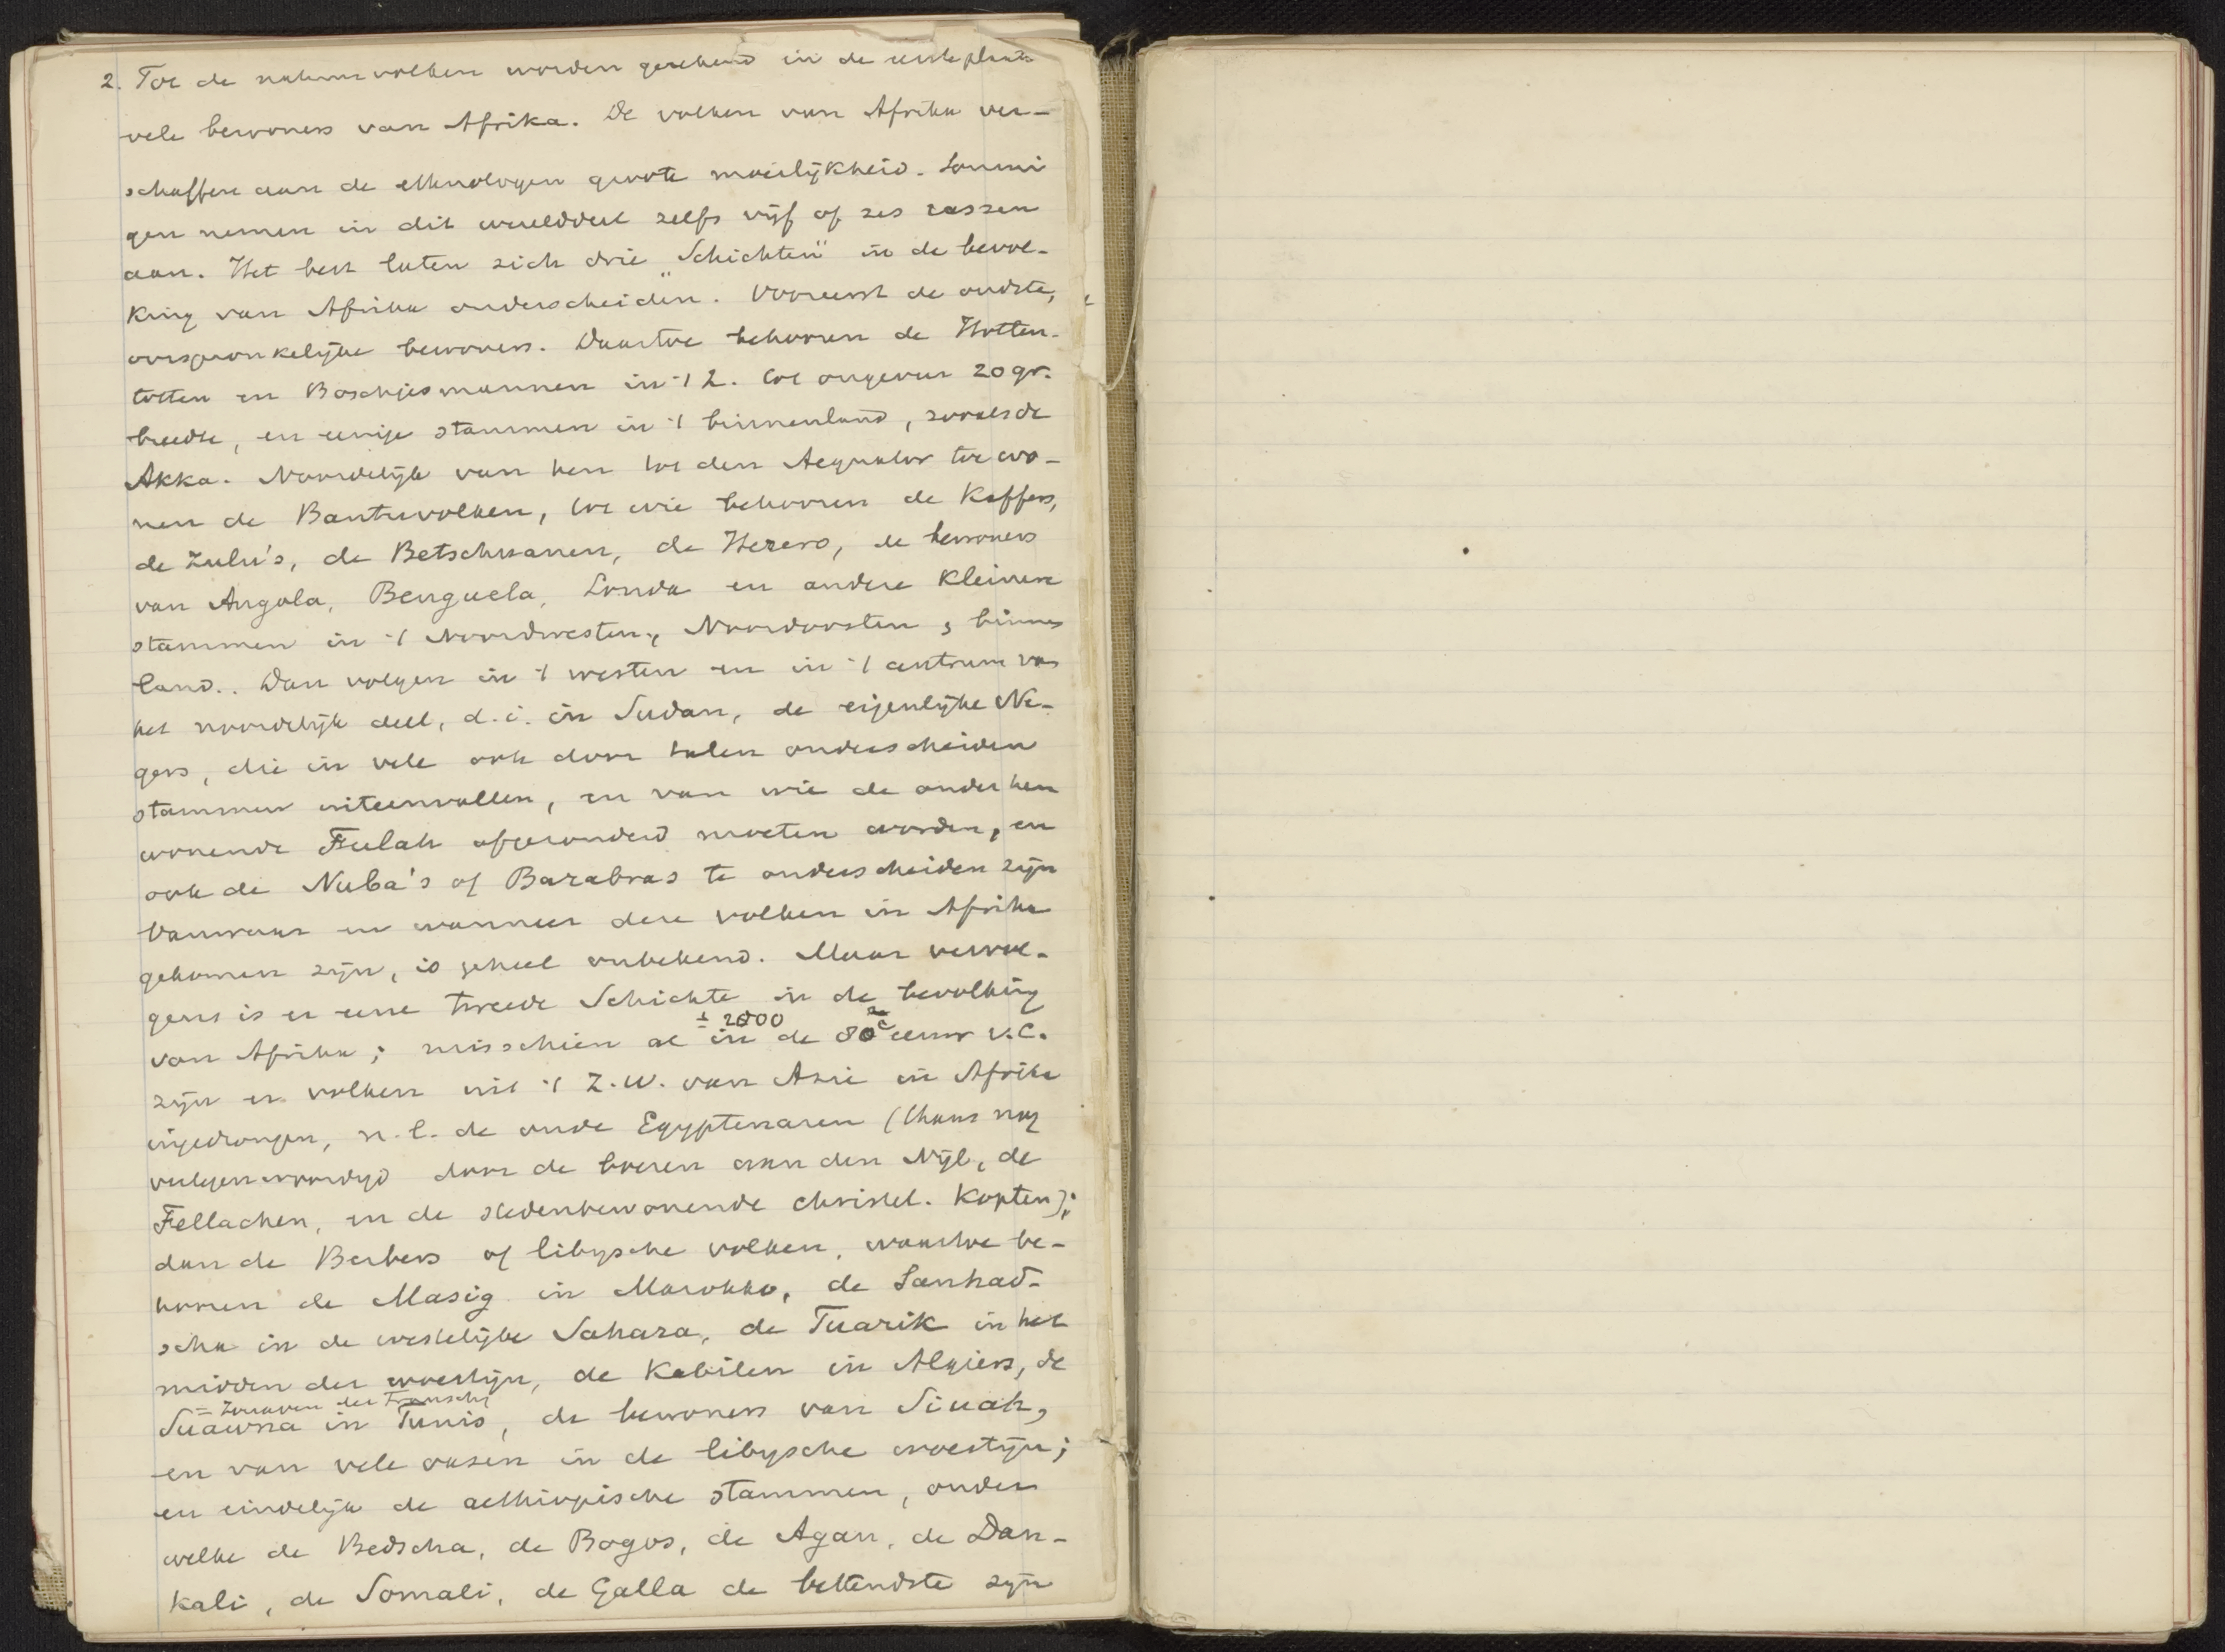 2. Tot de natuurvolken worden gerekend in de eerste plaats
vele bewoners van Afrika. De volken van Afrika ver-
schaffen aan de ethnologen groote moeilijkheid. Sommi
gen nemen in dit werelddeel zelfs vijf of zes rassen
aan. Het best laten zich drie „Schichten" in de bevol-
king van Afrika onderscheiden. Vooreerst de oudste,
oorspronkelijke bewoners. Daartoe behooren de Hotten-
totten en Boschjesmannen in 't Z. tot ongeveer 20 gr.
breedte, en eenige stammen in 't binnenland, zooals de
Akka. Noordelijk van hen tot den Aequator toe wo-
nen de Bantuvolken, tot wie behooren de Kaffers,
de Zulu's, de Betschuanen, de Herero, de bewoners
van Angola, Benguela, Londa en andere kleinere
stammen in 't Noordwesten, Noordoosten, binnen
land.. Dan volgen in 't westen en in 't centrum van
het noordelijk deel, d.i. in Sudan, de eigenlijke Ne-
gers, die in vele ook door talen onderscheiden
stammen uiteenvallen, en van wie de onder hen
wonende Fulah afgezonderd moeten worden, en
ook de Nuba's of Barabras te onderscheiden zijn
Vanwaar en wanneer deze volken in Afrika
gekomen zijn, is geheel onbekend. Maar vervol-
gens is er eene tweede Schichte in de bevolking
van Afrika; misschien al in de 80e eeuw v.C.
± 2000
zijn er volken uit 't Z.W. van Azië in Afrika
ingedrongen, n.l. de oude Egyptenaren (thans nog
vertegenwoordigd door de boeren aan den Nijl, de
Fellachen, en de stedenbewonende christel. Kopten);
dan de Berbers of libysche volken, waartoe be-
hooren de Masig in Marokko, de Sanhad-
scha in de westelijke Sahara, de Tuarik in het
midden der woestijn, de Kabilen in Algiers, de
= Zouaven der Fransche
Suawna in Tunis, de bewoners van Siuah,
en van vele oasen in de libysche woestijn;
en eindelijk de aethiopische stammen, onder
welke de Bedscha, de Bogos, de Agau, de Dan-
kali, de Somali, de Galla de bekendste zijn